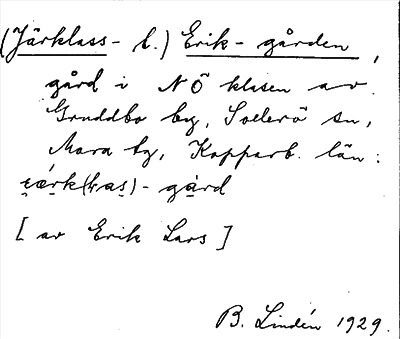 (Järklass- l.) Erik-gården,
gård i NÖ klasen av
Gruddbo by, Sollerö sn,
Mora tg, Kopparb. län:
ı̯ærk(las)-gård
[av Erik Lars]
B. Lindén 1929.